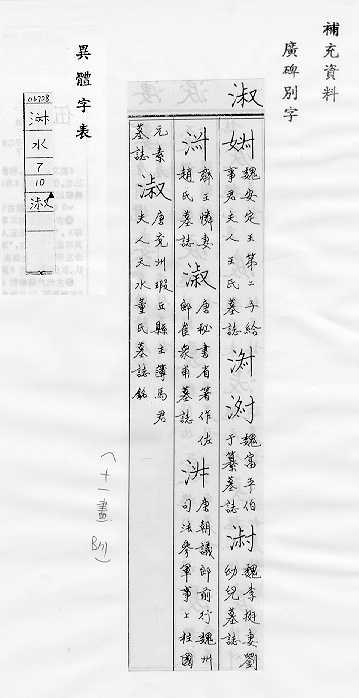 補充資料
廣碑別字
淑
魏安定王第二子給
事君夫人王氏墓誌
魏富平伯
于纂墓誌
魏李挺妻劉
幼兒墓誌
齊王憐妻
趙氏墓誌
淑
唐秘書省著作佐
郎崔眾甫墓誌
唐朝議郎前行魏州
司法參軍事上柱國
元素
墓誌
淑
唐兗州瑕丘縣主簿馬君
夫人天水董氏墓誌銘
異體字表
水
7
10
(十一畫